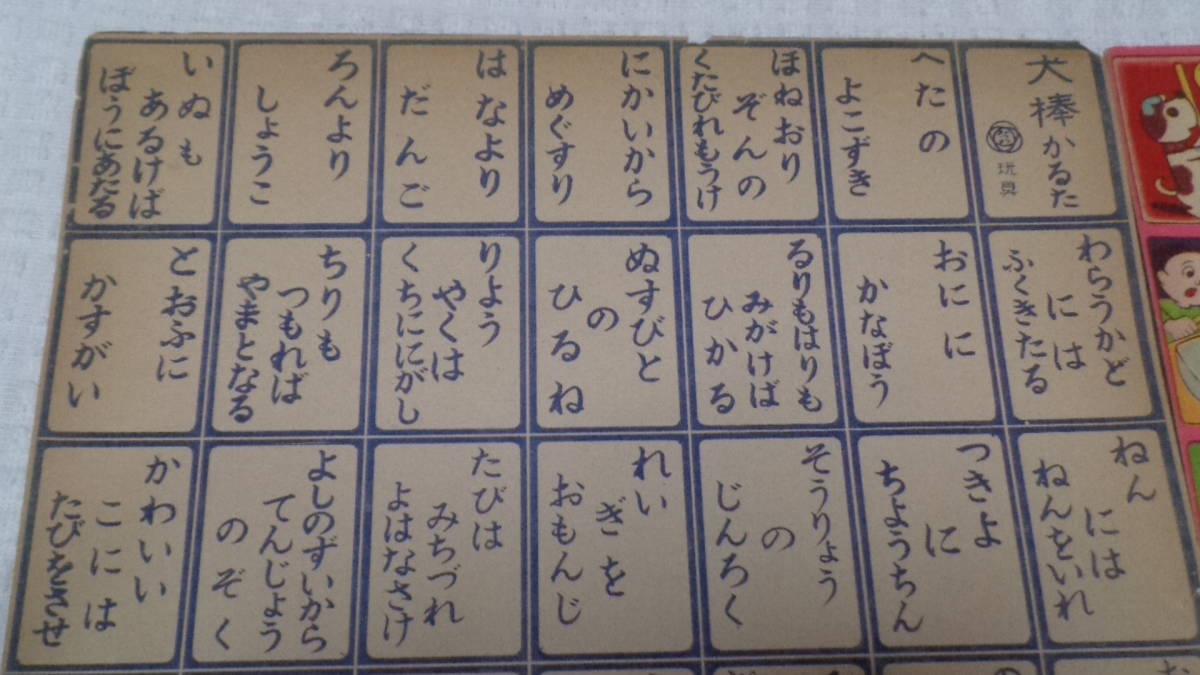 いぬも
あるけば
ぼうにあたる
ろんより
しょうこ
はなより
だんご
にかいから
めぐすり
ほねおり
ぞんの
くたびれもうけ
へたの
よこずき
犬棒かるた
玩具
とおふに
かすがい
ちりも
つもれば
やまとなる
りよう
やくは
くちににがし
ぬすびと
の
ひるね
るりもはりも
みがけば
ひかる
おにに
かなぼう
わらうかど
には
ふくきたる
かわいい
こには
たびをさせ
よしのずいから
てんじょう
のぞく
たびは
みちづれ
よはなさけ
れい
ぎを
おもんじ
そうりょう
の
じんろく
つきよ
に
ちょうちん
ねん
には
ねんをいれ